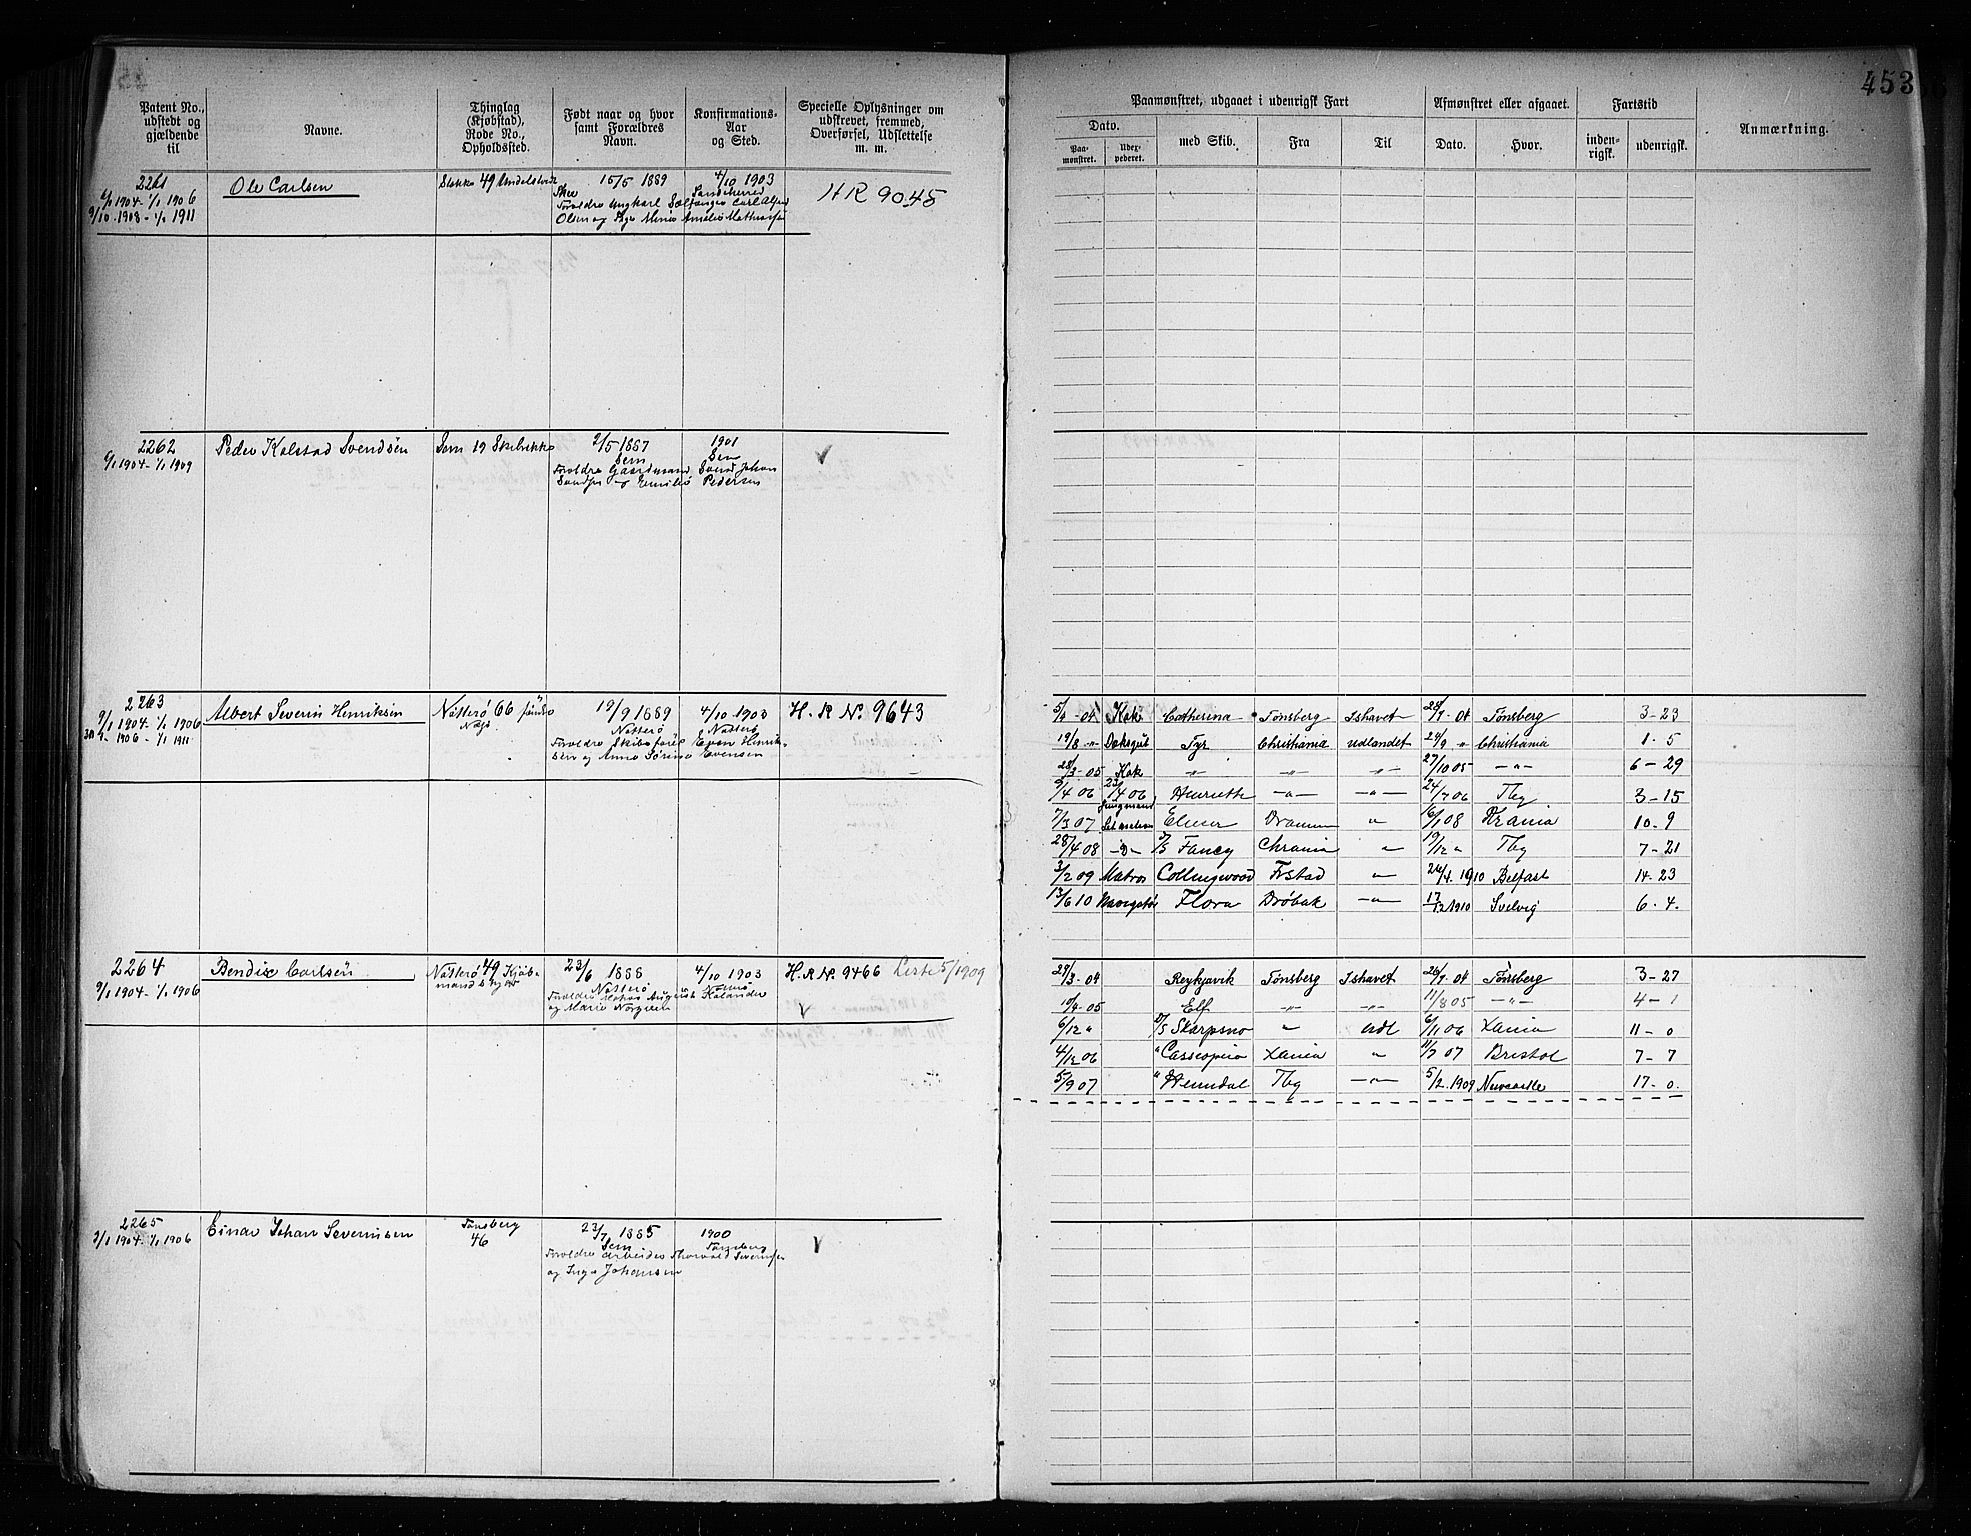 453
Patent No., udstedt og gjældende til
Navne.
Thinglag (Kjøbstad), Rode No., Opholdssted.
Født naar og hvor samt Forældres Navn.
Konfirmations-Aar og Sted.
Specielle Oplysninger om udskrevet, fremmed, Overførsel, Udslettelse m. m.
Paamønstret, udgaaet i udenrigsk Fart
Afmønstret eller afgaaet.
Fartstid
Anmærkning.
Dato.
Paa-mønstret.
Udex-pederet.
med Skib.
Fra
Til
Dato.
Hvor.
inden-rigsk.
udenrigsk.
2261 Ole Carlsen Stokke 49 15/5 1889 4/10 1903 HR 9045
6/1 1904 - 1/1 1906 Sandeherred
9/10 1908 - 1/1 1911
2262 Peder Kolstad Svendsen Sem 19 2/5 1887 1901
6/1 1904 - 1/1 1909 Sem Sem
Forældre Gaardmand Svend Johan
Pedersen
2263 Albert Severin Henriksen Nøtterø 66 19/9 1889 4/10 1903 H.R No. 9643
9/1 1904 - 1/1 1906 Nøtterø Nøtterø
1906 - 1/1 1911 Forældre Even Henrik-
sen og Anne Sørine Evensen
5/4 - 04 Kok Catherina Tønsberg Ishavet 28/7 - 04 Tønsberg 3 - 23
19/8 - " Dæksgut Tyr Christiania Udlandet 24/9 " Christiania 1 - 5
28/3 - 05 Kok - " - - " - - " - 27/10 05 - " - 6 - 29
9/4 06 Henriette - " - - " - 24/7 06 Tbg 3 - 15
7/3 07 Elieser Drammen " 16/1 08 Krania 10 - 9
28/4 08 - " - D/S Fancy Chrania " 19/12 " Tbg 7 - 21
3/2 09 Matros Collingwood Frstad " 26/4 1910 Belfast 14 - 23
13/6 10 Flora Drøbak - " - 17/12 1910 Svelvig 6 - 4.
2264 Bendix Carlsen Nøtterø 49 Kjøb- 23/6 1888 4/10 1903 H.R No. 9466 Liste 5/1909
9/1 1904 - 1/1 1906 Nøtterø Nøtterø
29/3 - 04 Reykjavik Tønsberg Ishavet 26/7 - 04 Tønsberg 3 - 27
10/4 - 05 Elf - " - - " - 11/8 05 - " - 4 - 1
6/12 " D/S Skarpsno " Udl 6/11 06 Xania 11 - 0
4/12 06 " Cassiopeia Xania " 11/7 07 Bristol 7 - 7
5/9 07 " Heimdal Tbg - " - 5/2 1909 Newcastle 17 - 0
2265 Einar Johan Severinsen Tønsberg 23/7 1885 1900
1/1 1904 - 1/1 1906 46 Sem Tønsberg
Forældre Arbeider Thorvald Severinsen
og Inga Johansen